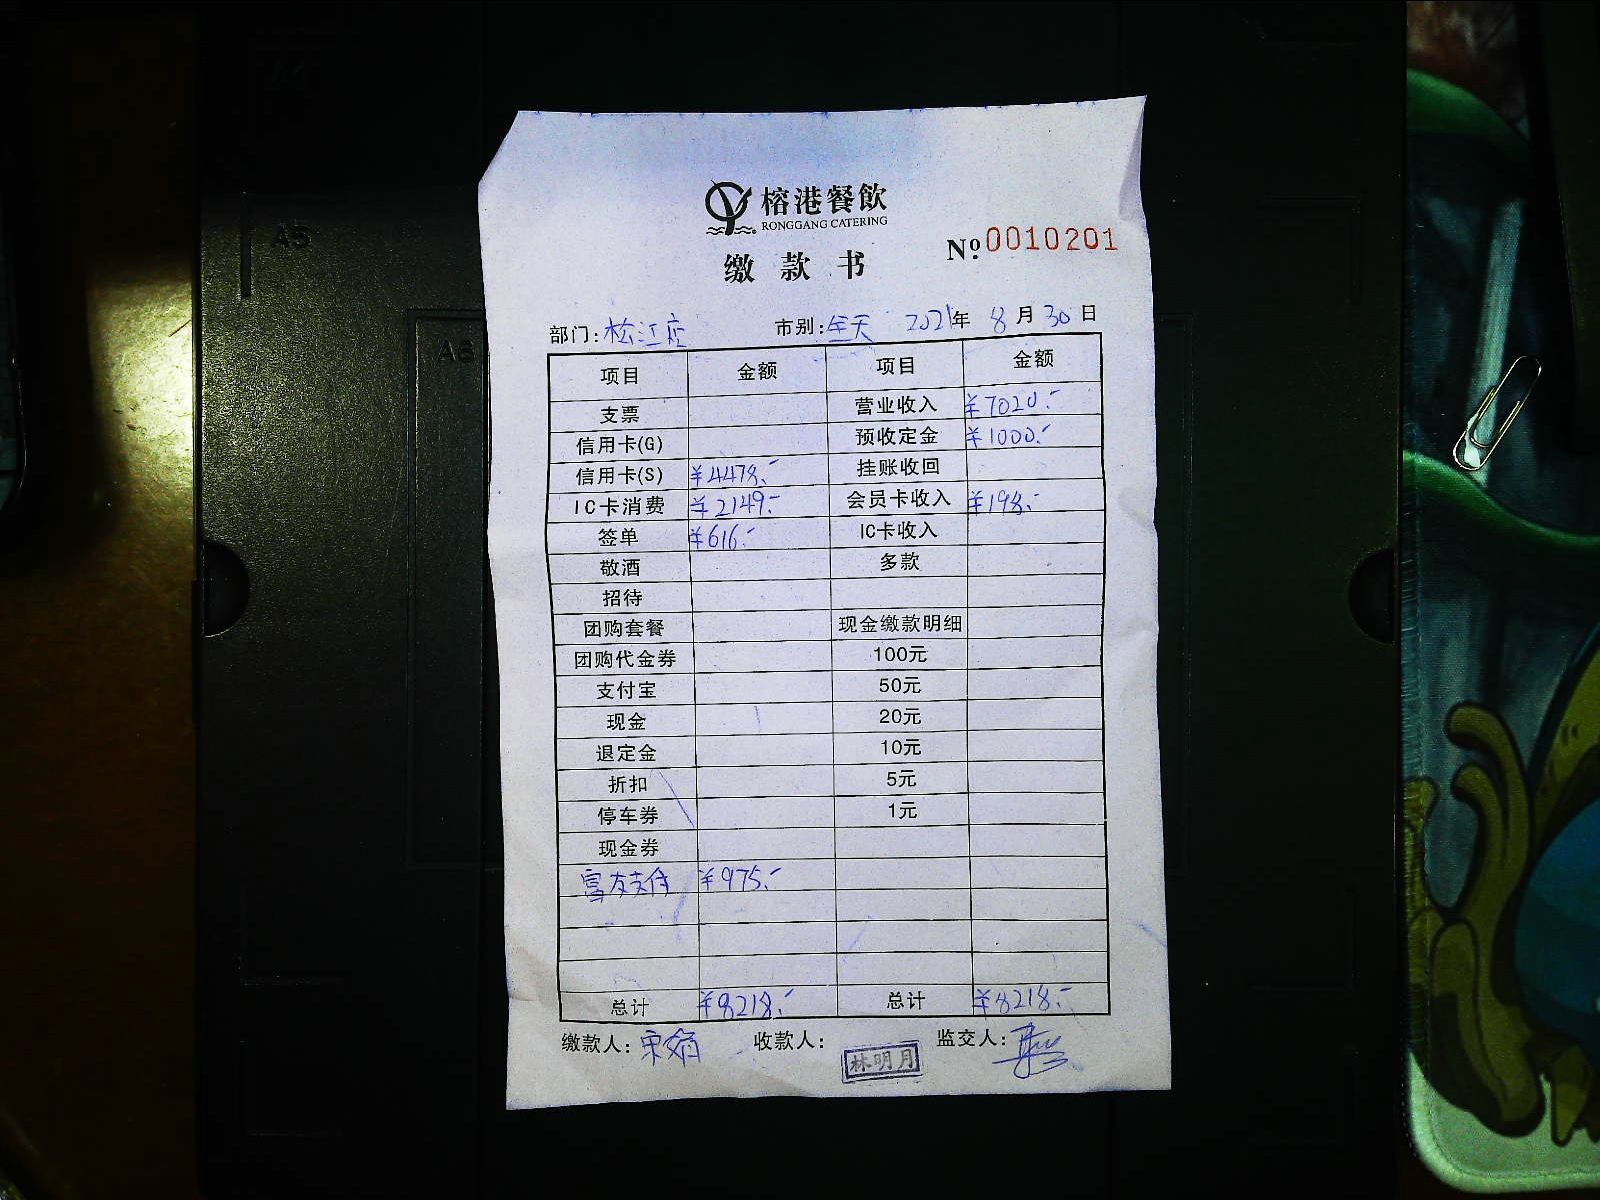 榕港餐飲
RONGGANG CATERING
缴款书 №0010201
部门:松江店 市别:全天 2021年8月30日
项目 金额 项目 金额
支票 营业收入 ¥7020.-
信用卡(G) 预收定金 ¥1000.-
信用卡(S) ¥4478.- 挂账收回
IC卡消费 ¥2149.- 会员卡收入 ¥198.-
签单 ¥616.- IC卡收入
敬酒 多款
招待
团购套餐 现金缴款明细
团购代金券 100元
支付宝 50元
现金 20元
退定金 10元
折扣 5元
停车券 1元
现金券
富友支付 ¥975.-
总计 ¥8218.- 总计 ¥8218.-
缴款人: 收款人:林明月 监交人:
A5
A6